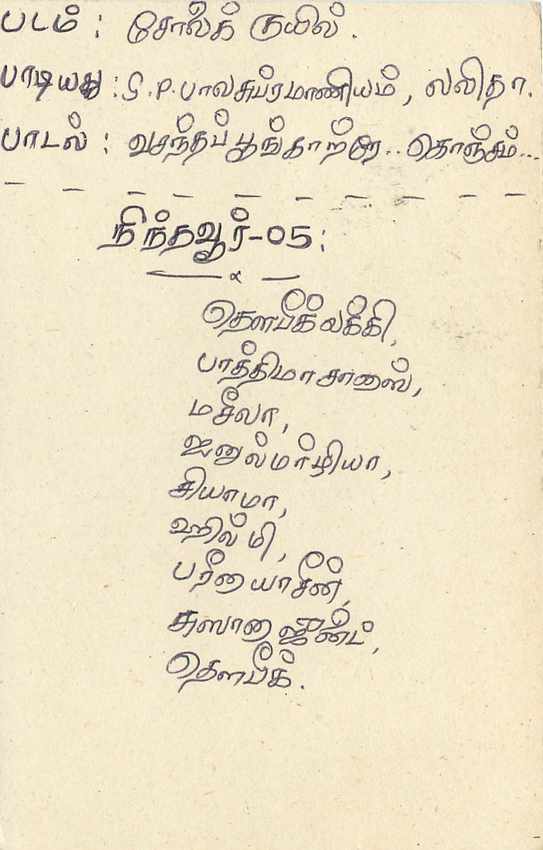 படம் : சோலக் குயில்.
பாடியது : S.P.பாலசுப்ரமாணியம், லலிதா.
பாடல் : வசந்தப் பூங்காற்றே.. கொஞ்சம்...
நிந்தவூர்-05:
தௌபீக் லக்கி,
பாத்திமா சானாஸ்,
மசீலா,
ஐனுல்மர்ழியா,
சியாமா,
ஹில்மி,
பரீனா யாசீன்,
சுஸானா ஜுனைட்,
தௌபீக்.